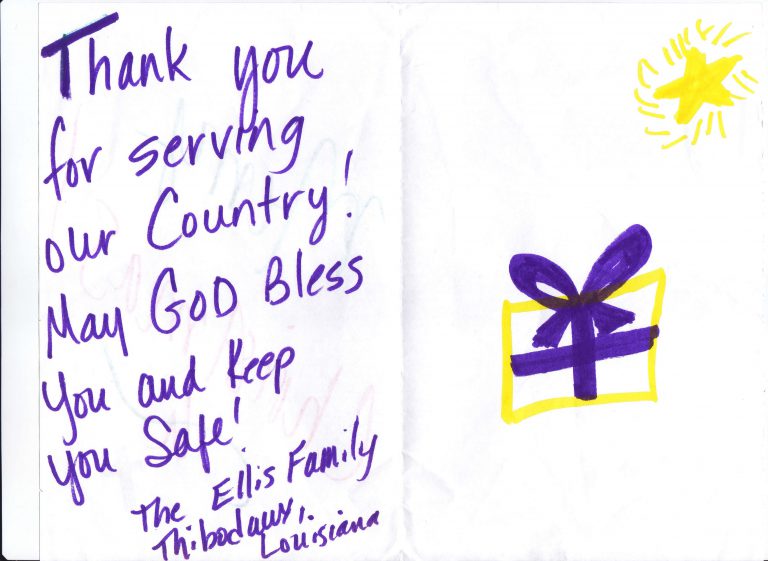 Thank you
for serving
our Country!
May GOD Bless
You and Keep
you Safe!
The Ellis Family
Thibodaux,
Louisiana